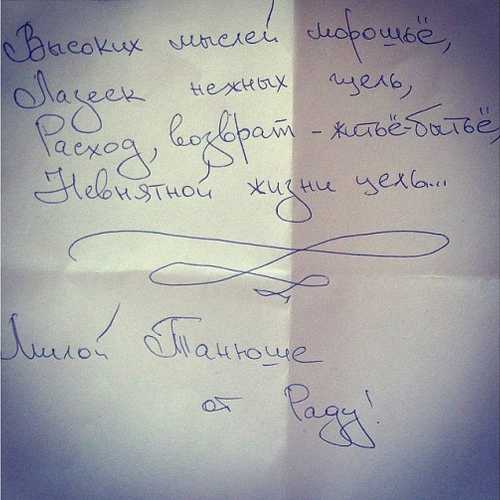 Высоких мыслей морошьё,
Лазеек нежных щель,
Расход, возврат - житьё-бытьё,
Невнятной жизни цель...
Милой Танюше
от Раду!